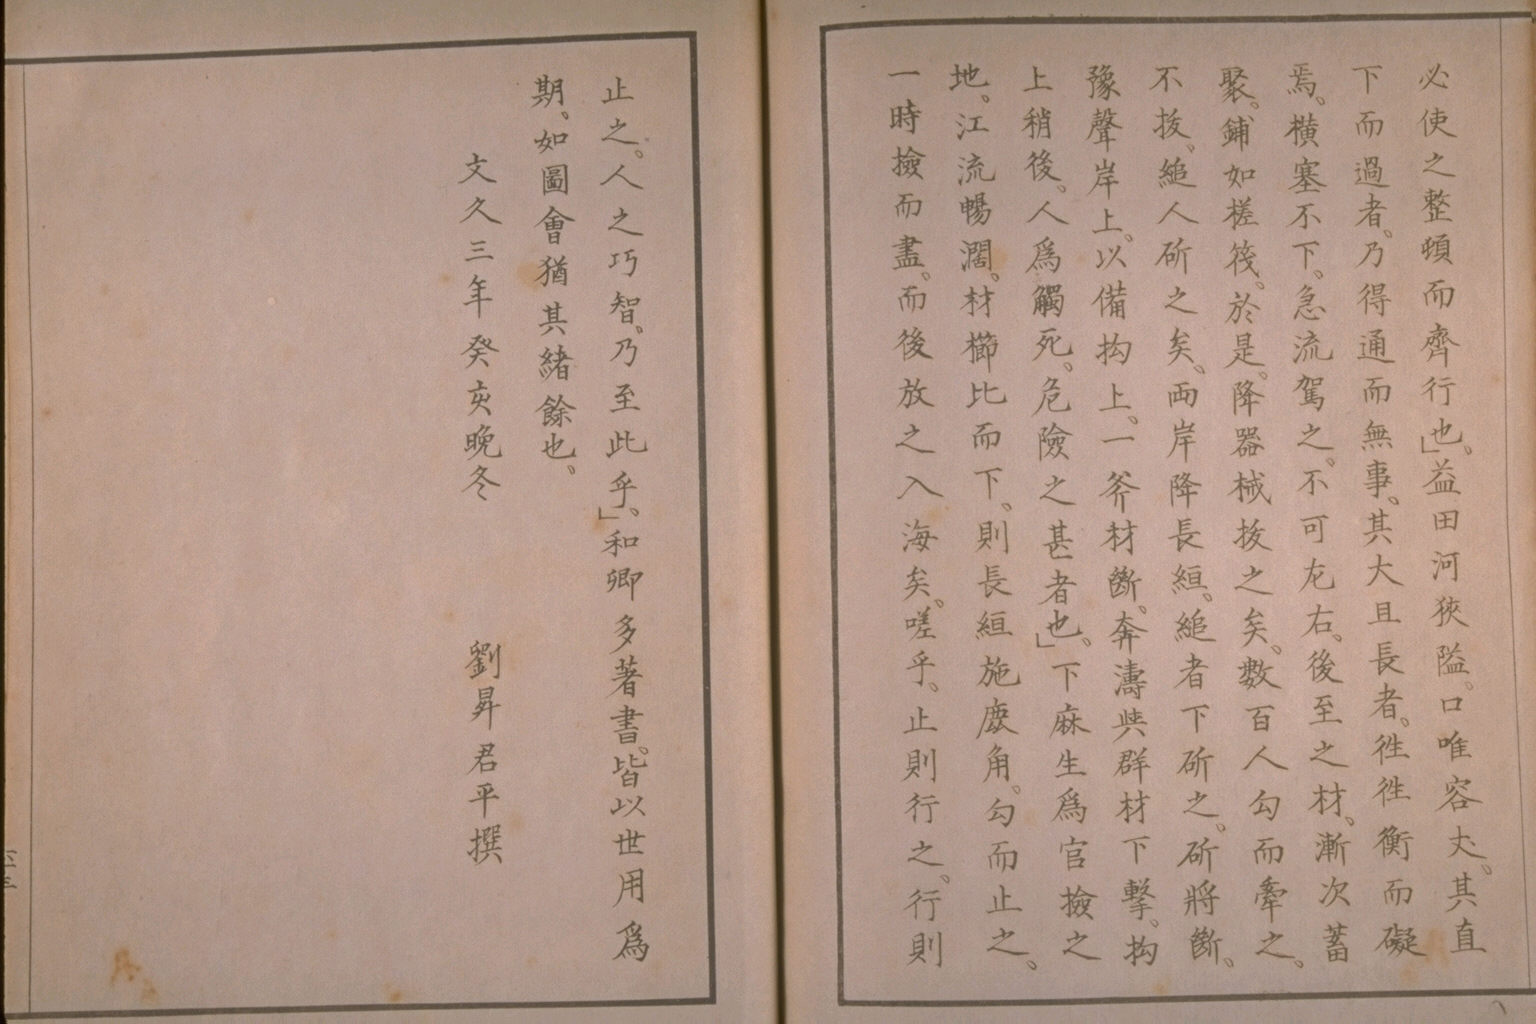 必使之整頓而齊行也」。益田河狹隘。口唯容丈。其直
下而過者。乃得通而無事。其大且長者。徃徃衡而礙
焉。橫塞不下。急流駕之。不可左右。後至之材。漸次蓄
聚。鋪如槎筏。於是。降器械拔之矣。數百人勾而牽之。
不拔。縋人斫之矣。兩岸降長絙。縋者下斫之。斫將斷。
豫聲岸上。以備抅上。一斧材斷。奔濤與群材下擊。抅
上稍後。人爲觸死。危險之甚者也」。下麻生爲官撿之
地。江流暢濶。材櫛比而下。則長絙施鹿角。勾而止之。
一時撿而盡。而後放之入海矣。嗟乎。止則行之。行則
止之。人之巧智。乃至此乎」。和卿多著書。皆以世用爲
期。如圖會猶其緒餘也。
文久三年癸亥晚冬
劉昇君平撰